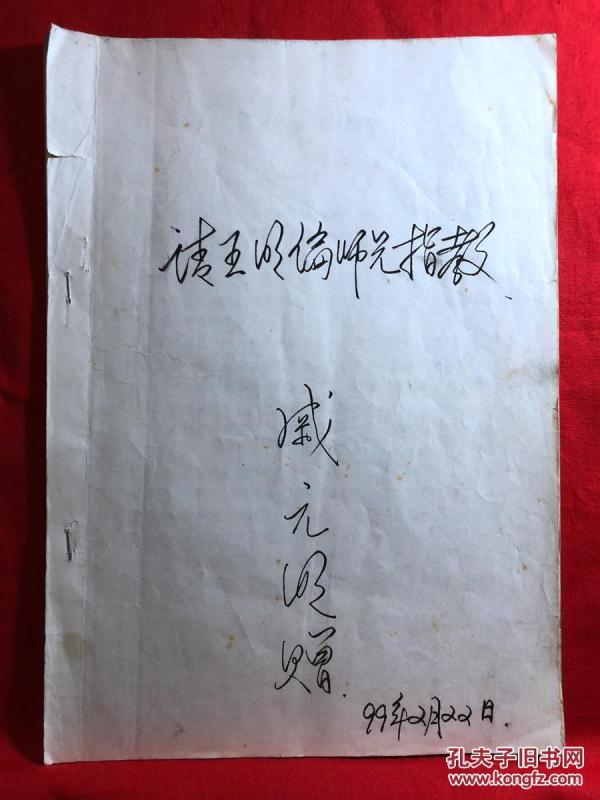 请王明伦师兄指教.
戚元明赠.
99年2月22日.
孔夫子旧书网
www.kongfz.com